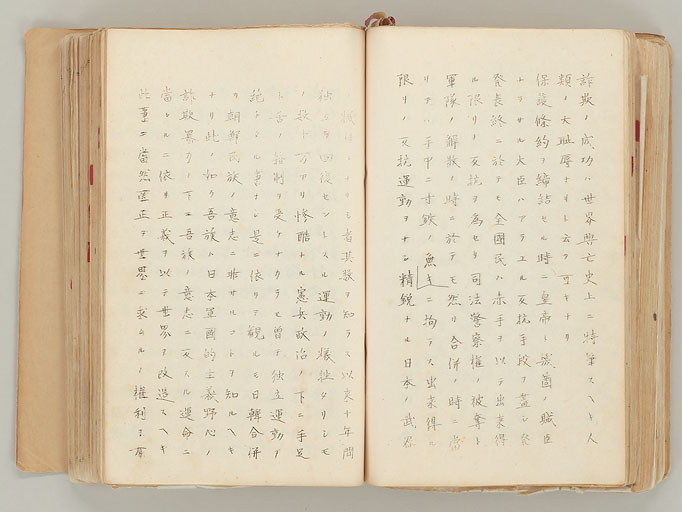 詐欺ノ成功ハ世界興亡史上ニ特筆スヘキ人
類ノ大恥辱ナリト云フ可キナリ
保護條約ヲ締結セル時ニ皇帝ト 賊臣
ナラサル大臣ハアラユル反抗手段ヲ盡シ發
發表終ニ於テモ全國民ハ赤手ヲ以テ出来得
ル限リノ反抗ヲ為セリ司法警察權ノ被奪ト
軍隊ノ解散ノ時ニ於テモ然リ合併ノ時ニ當
リテハ手中ニ寸鉄ノ無キニ拘ラス出来得ル
限リノ反抗運動ヲナシ精鋭ナル日本ノ武器
ノ犠牲トナリシ者其数ヲ知ラス以来十年間
独立ヲ回復セントスル運動ノ犠牲タリシモ
ノ数十万ナリ惨酷ナル憲兵政治ノ下ニ手足
ト舌ノ拑制ヲ受ケナカラモ曾テ独立運動ノ
絶ヘタル事ナシ是ニ依リテ観ルモ日韓合併
カ朝鮮民族ノ意志ニ非サルコトヲ知ルヘキ
ナリ此ノ如ク吾族ハ日本軍國的主義野心ノ
詐欺暴力ノ下ニ吾族ノ意志ニ反スル運命ニ
當レルニ依リ正義ヲ以テ世界ヲ改造スヘキ
此ノ事ニ當然匡正ヲ世界ニ求ムルノ權利ヲ有